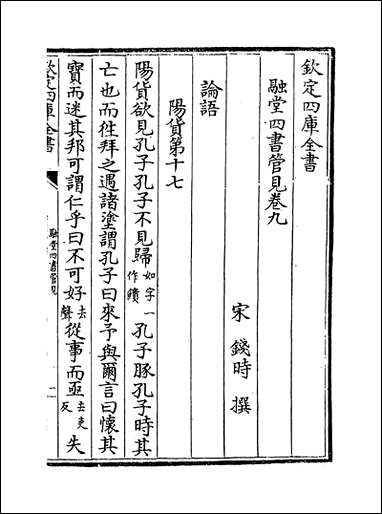 欽定四庫全書
融堂四書管見卷九
宋 錢時 撰
論語
陽貨第十七
陽貨欲見孔子孔子不見歸如字一作饋孔子豚孔子時其
亡也而徃拜之遇諸塗謂孔子曰來予與爾言曰懷其
寶而迷其邦可謂仁乎曰不可好去聲從事而亟去吏反失
欽定四庫全書
融堂四書管見